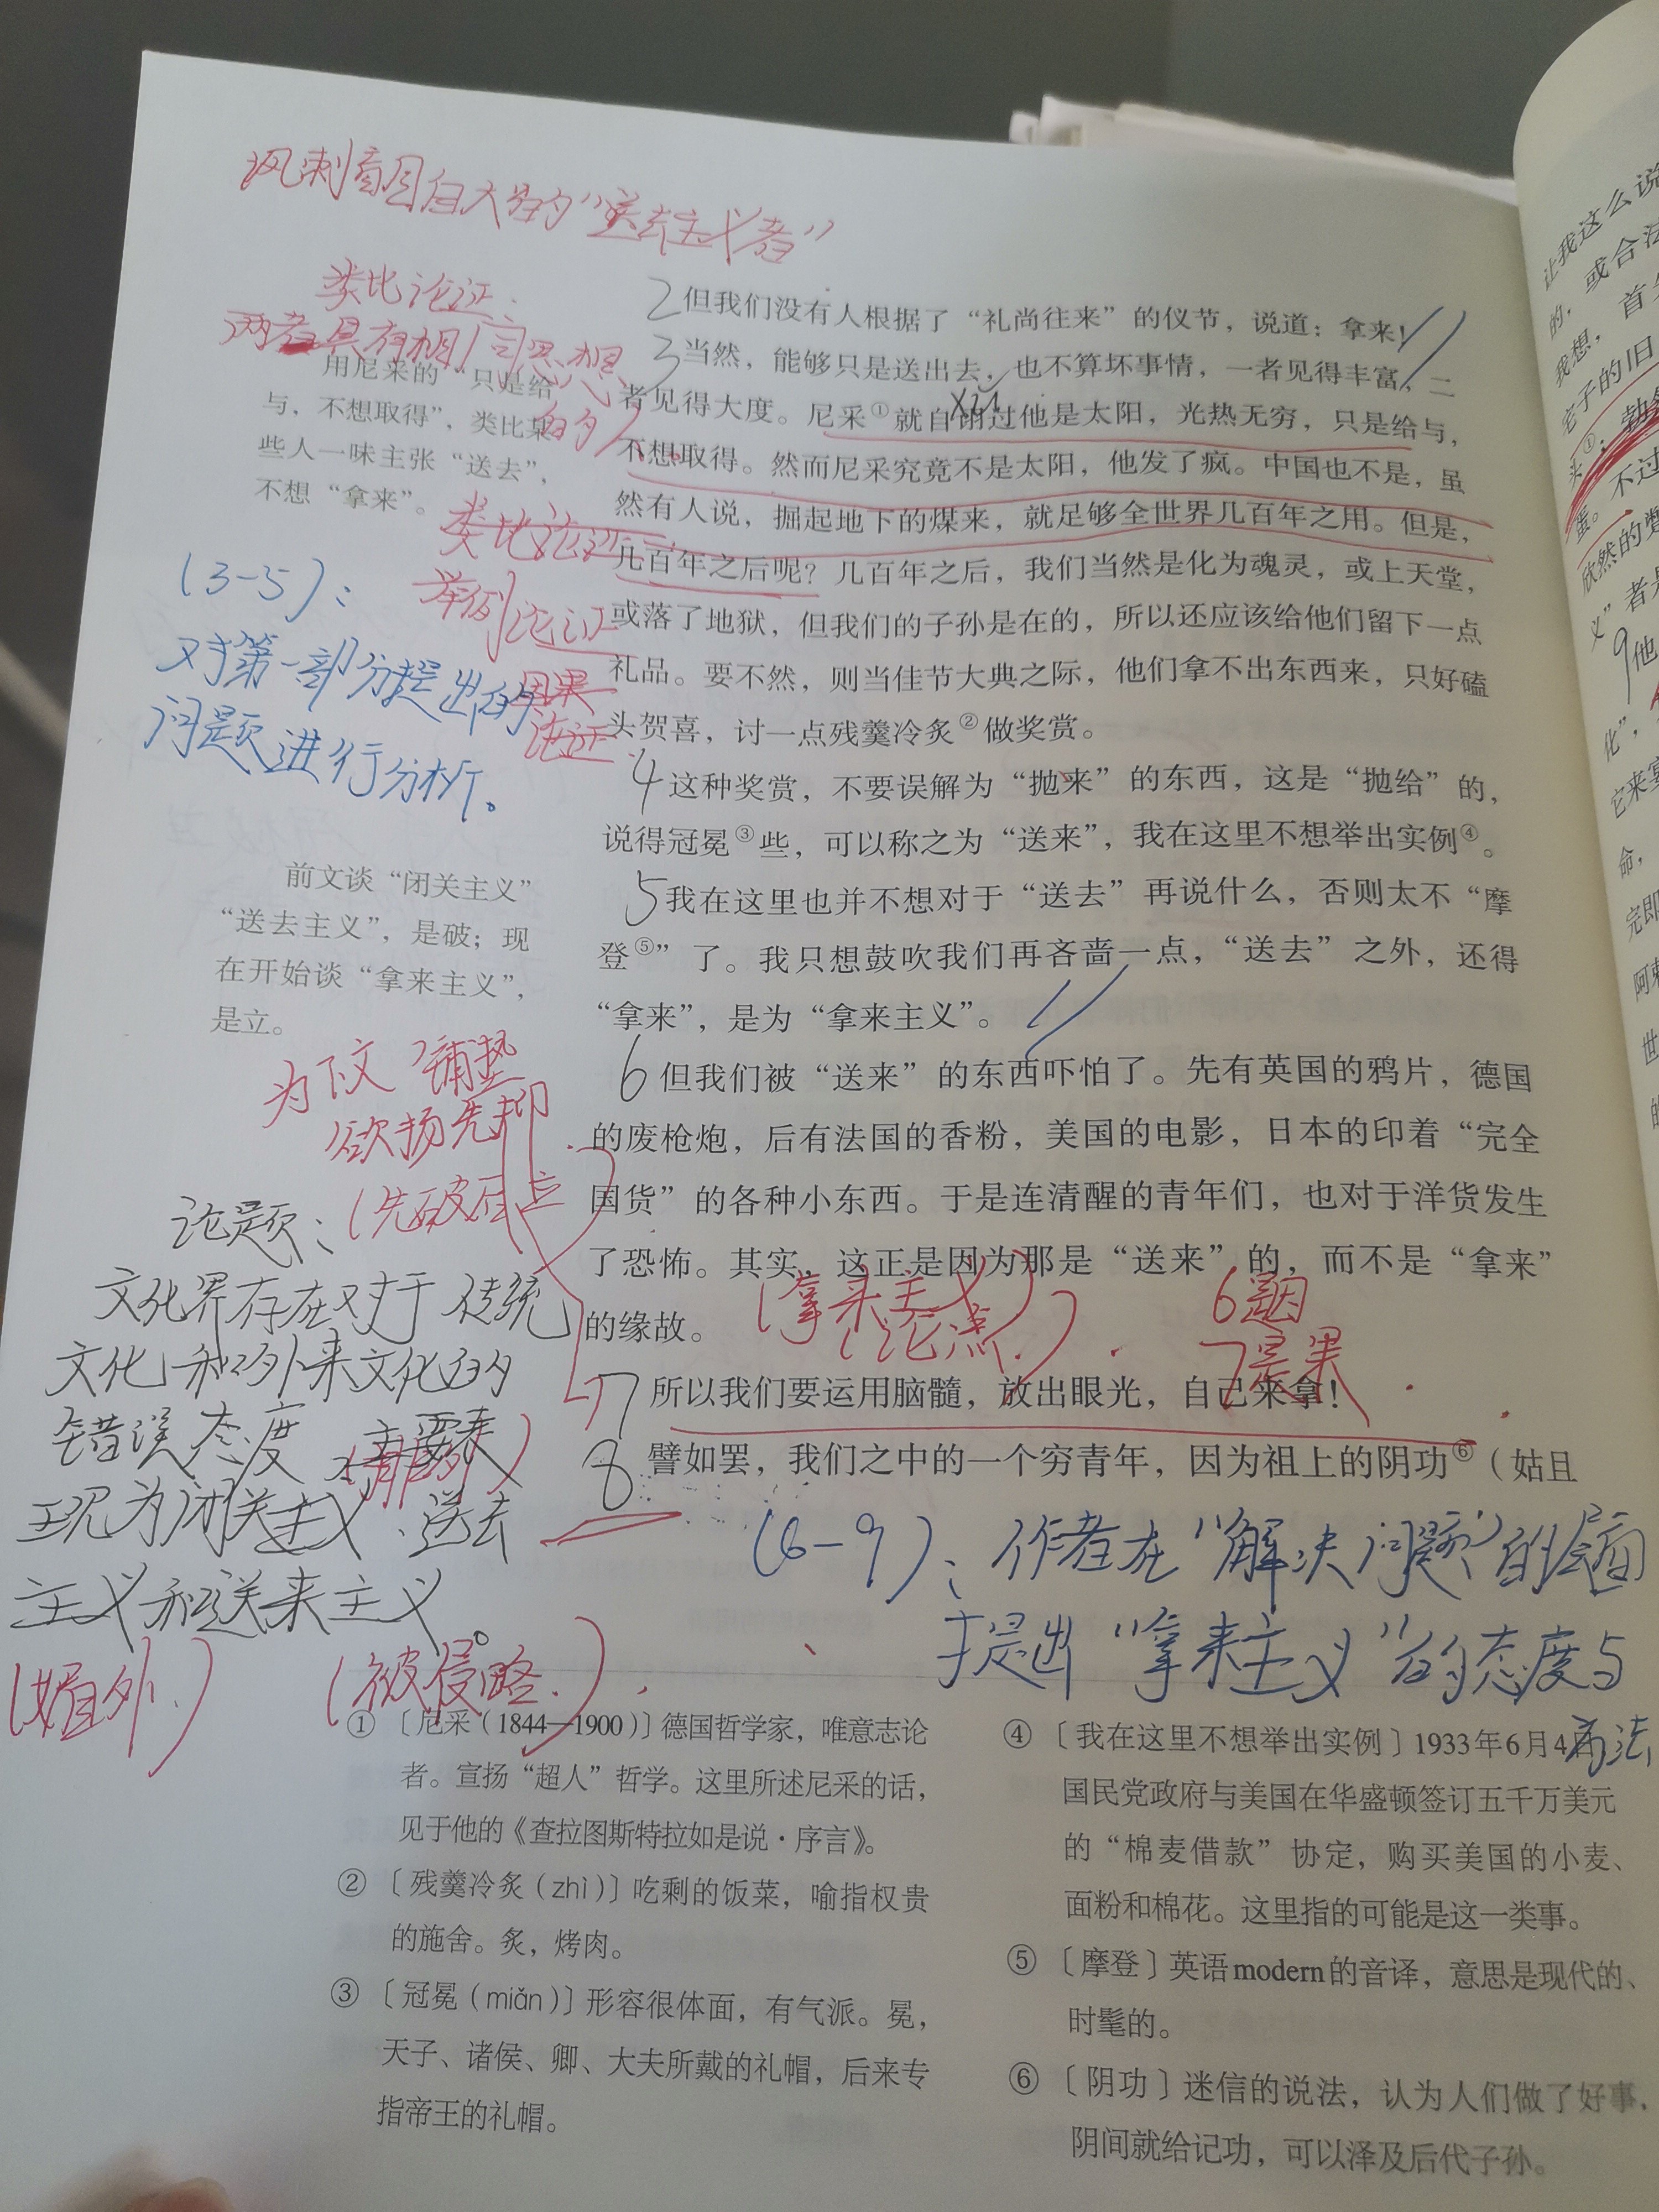 讽刺盲目自大的“送去主义者”
类比论证：
两者具有相同思想的
用尼采的“只是给
与，不想取得”，类比某
些人一味主张“送去”，
不想“拿来”。
类比论证
举例论证
因果
论证
(3-5)：
对第一部分提出的
问题进行分析。
前文谈“闭关主义”
“送去主义”，是破；现
在开始谈“拿来主义”，
是立。
为下文铺垫
欲扬先抑
(先破后立)
论题：
文化界存在对于传统
文化和外来文化的
错误态度，主要表
现为闭关主义、送去
主义和送来主义。
(媚外.)
(被侵略.)
2 但我们没有人根据了“礼尚往来”的仪节，说道：拿来！
3 当然，能够只是送出去，也不算坏事情，一者见得丰富，二
者见得大度。尼采①就自诩过他是太阳，光热无穷，只是给与，
xǔ
不想取得。然而尼采究竟不是太阳，他发了疯。中国也不是，虽
然有人说，掘起地下的煤来，就足够全世界几百年之用。但是，
几百年之后呢？几百年之后，我们当然是化为魂灵，或上天堂，
或落了地狱，但我们的子孙是在的，所以还应该给他们留下一点
礼品。要不然，则当佳节大典之际，他们拿不出东西来，只好磕
头贺喜，讨一点残羹冷炙②做奖赏。
4 这种奖赏，不要误解为“抛来”的东西，这是“抛给”的，
说得冠冕③些，可以称之为“送来”，我在这里不想举出实例④。
5 我在这里也并不想对于“送去”再说什么，否则太不“摩
登⑤”了。我只想鼓吹我们再吝啬一点，“送去”之外，还得
“拿来”，是为“拿来主义”。
6 但我们被“送来”的东西吓怕了。先有英国的鸦片，德国
的废枪炮，后有法国的香粉，美国的电影，日本的印着“完全
国货”的各种小东西。于是连清醒的青年们，也对于洋货发生
了恐怖。其实，这正是因为那是“送来”的，而不是“拿来”
的缘故。
(拿来主义)
(论点.)
6是因
7是果
7 所以我们要运用脑髓，放出眼光，自己来拿！
8 譬如罢，我们之中的一个穷青年，因为祖上的阴功⑥（姑且
(6-9)：作者在“解决问题”的层面
提出“拿来主义”的态度与
方法
① 〔尼采（1844—1900）〕德国哲学家，唯意志论
者。宣扬“超人”哲学。这里所述尼采的话，
见于他的《查拉图斯特拉如是说·序言》。
② 〔残羹冷炙（zhì）〕吃剩的饭菜，喻指权贵
的施舍。炙，烤肉。
③ 〔冠冕（miǎn）〕形容很体面，有气派。冕，
天子、诸侯、卿、大夫所戴的礼帽，后来专
指帝王的礼帽。
④ 〔我在这里不想举出实例〕1933年6月4
国民党政府与美国在华盛顿签订五千万美元
的“棉麦借款”协定，购买美国的小麦、
面粉和棉花。这里指的可能是这一类事。
⑤ 〔摩登〕英语modern的音译，意思是现代的、
时髦的。
⑥ 〔阴功〕迷信的说法，认为人们做了好事，
阴间就给记功，可以泽及后代子孙。
让我这么说
的，或合法
我想，首
它子的旧
头①；勃
蛋。不过
欣然的
义”者是
9 他
化”，
它来
命，
完
阿
世
的